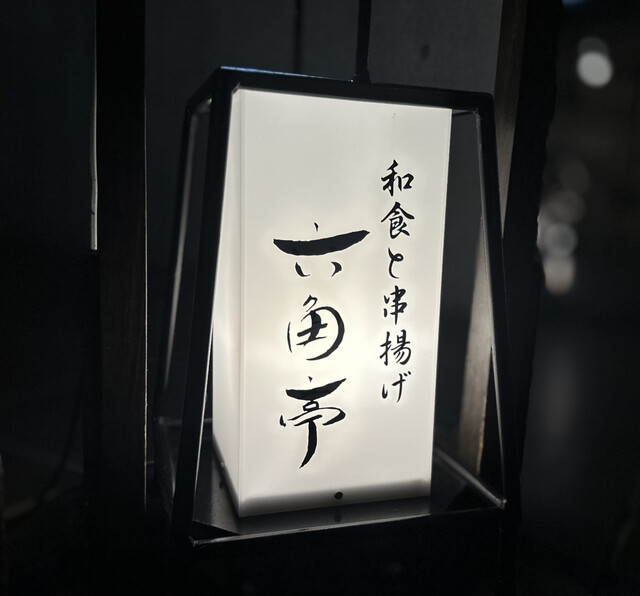 和食と串揚げ
六角亭